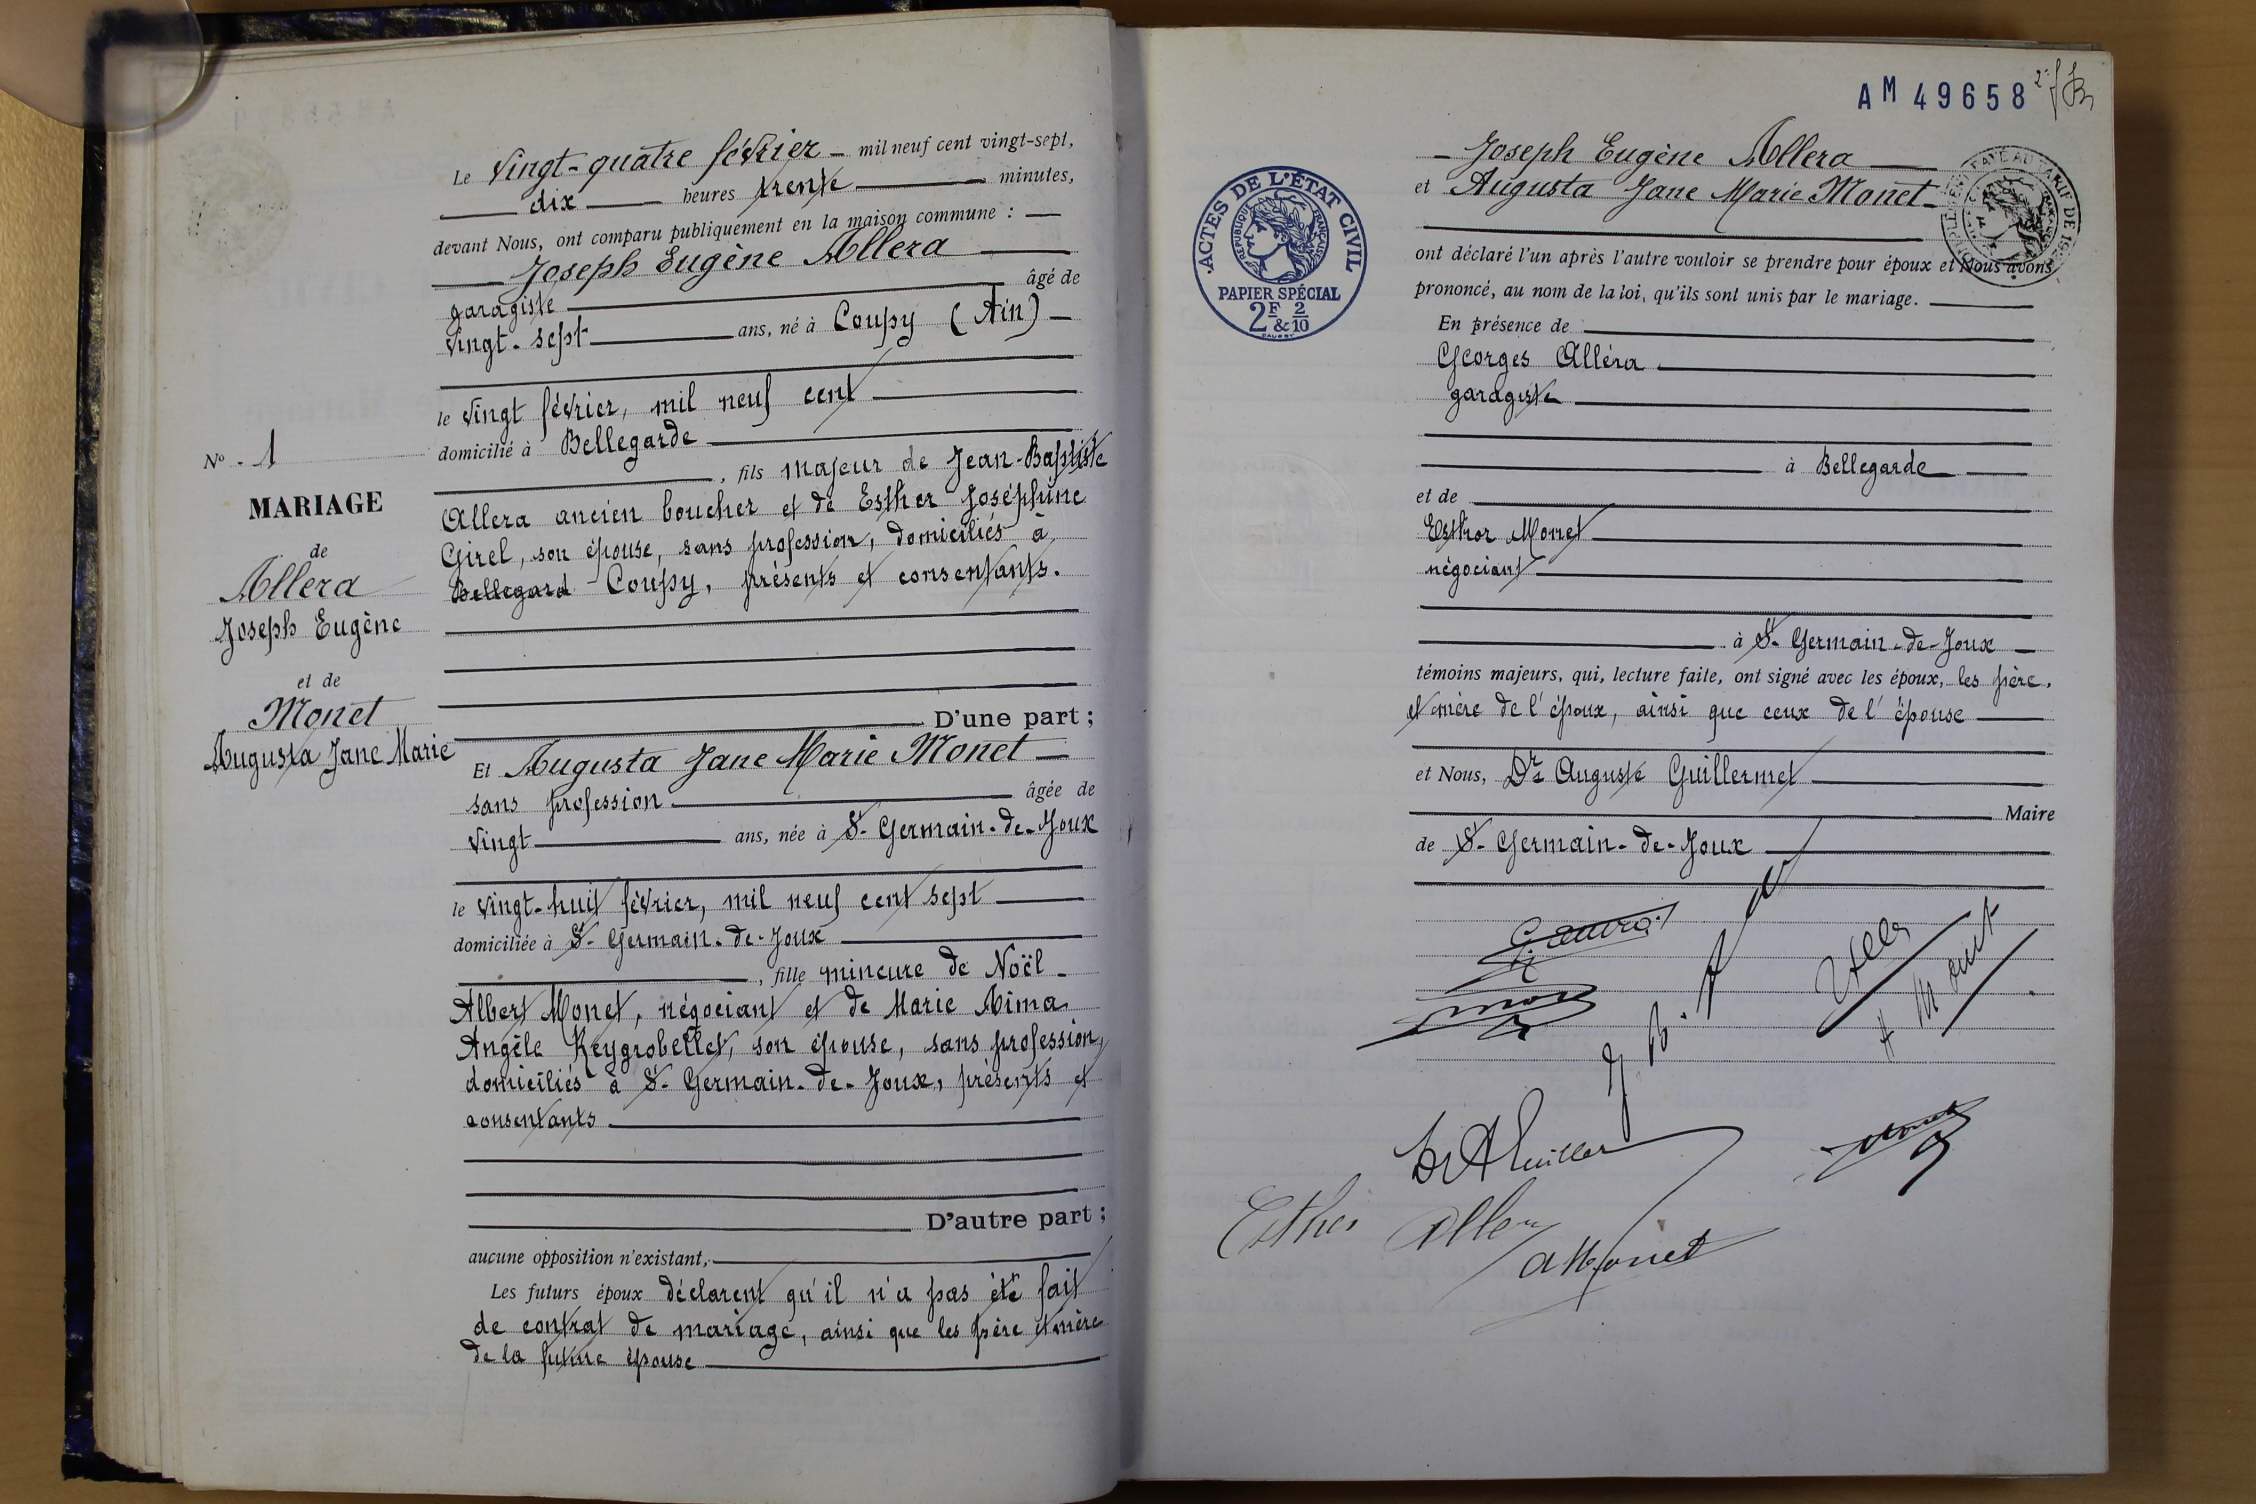 Le Vingt-quatre février mil neuf cent vingt-sept,
dix heures trente minutes,
devant Nous, ont comparu publiquement en la maison commune :
Joseph Eugène Allera
garagiste âgé de
vingt-sept ans, né à Coupy (Ain)
le vingt février, mil neuf cent
domicilié à Bellegarde
, fils majeur de Jean-Baptiste
Allera ancien boucher et de Esther Joséphine
Girel, son épouse, sans profession, domiciliés à
Bellegard Coupy, présents et consentants.
D'une part ;
Et Augusta Jane Marie Monet
sans profession âgée de
vingt ans, née à St-Germain-de-Joux
le vingt-huit février, mil neuf cent sept
domiciliée à St-Germain-de-Joux
, fille mineure de Noël
Albert Monet, négociant et de Marie Aima
Angèle Reygrobellet, son épouse, sans profession,
domiciliés à St-Germain-de-Joux, présents et
consentants
D'autre part ;
aucune opposition n'existant,
Les futurs époux déclarent qu'il n'a pas été fait
de contrat de mariage, ainsi que les père et mère
de la future épouse
No. 1
MARIAGE
de
Allera
Joseph Eugène
et de
Monet
Augusta Jane Marie
AM 49658
ACTES DE L'ÉTAT CIVIL
RÉPUBLIQUE FRANÇAISE
PAPIER SPÉCIAL
2F & 2/10
Joseph Eugène Allera
et Augusta Jane Marie Monet
ont déclaré l'un après l'autre vouloir se prendre pour époux et Nous avons
prononcé, au nom de la loi, qu'ils sont unis par le mariage.
En présence de
Georges Alléra
garagiste
à Bellegarde
et de
Esthor Monet
négociant
à St-Germain-de-Joux
témoins majeurs, qui, lecture faite, ont signé avec les époux, les père,
et mère de l'époux, ainsi que ceux de l'épouse
et Nous, Dr Auguste Guillermet
Maire
de St-Germain-de-Joux
A Monet
Esther Allera
A Monet